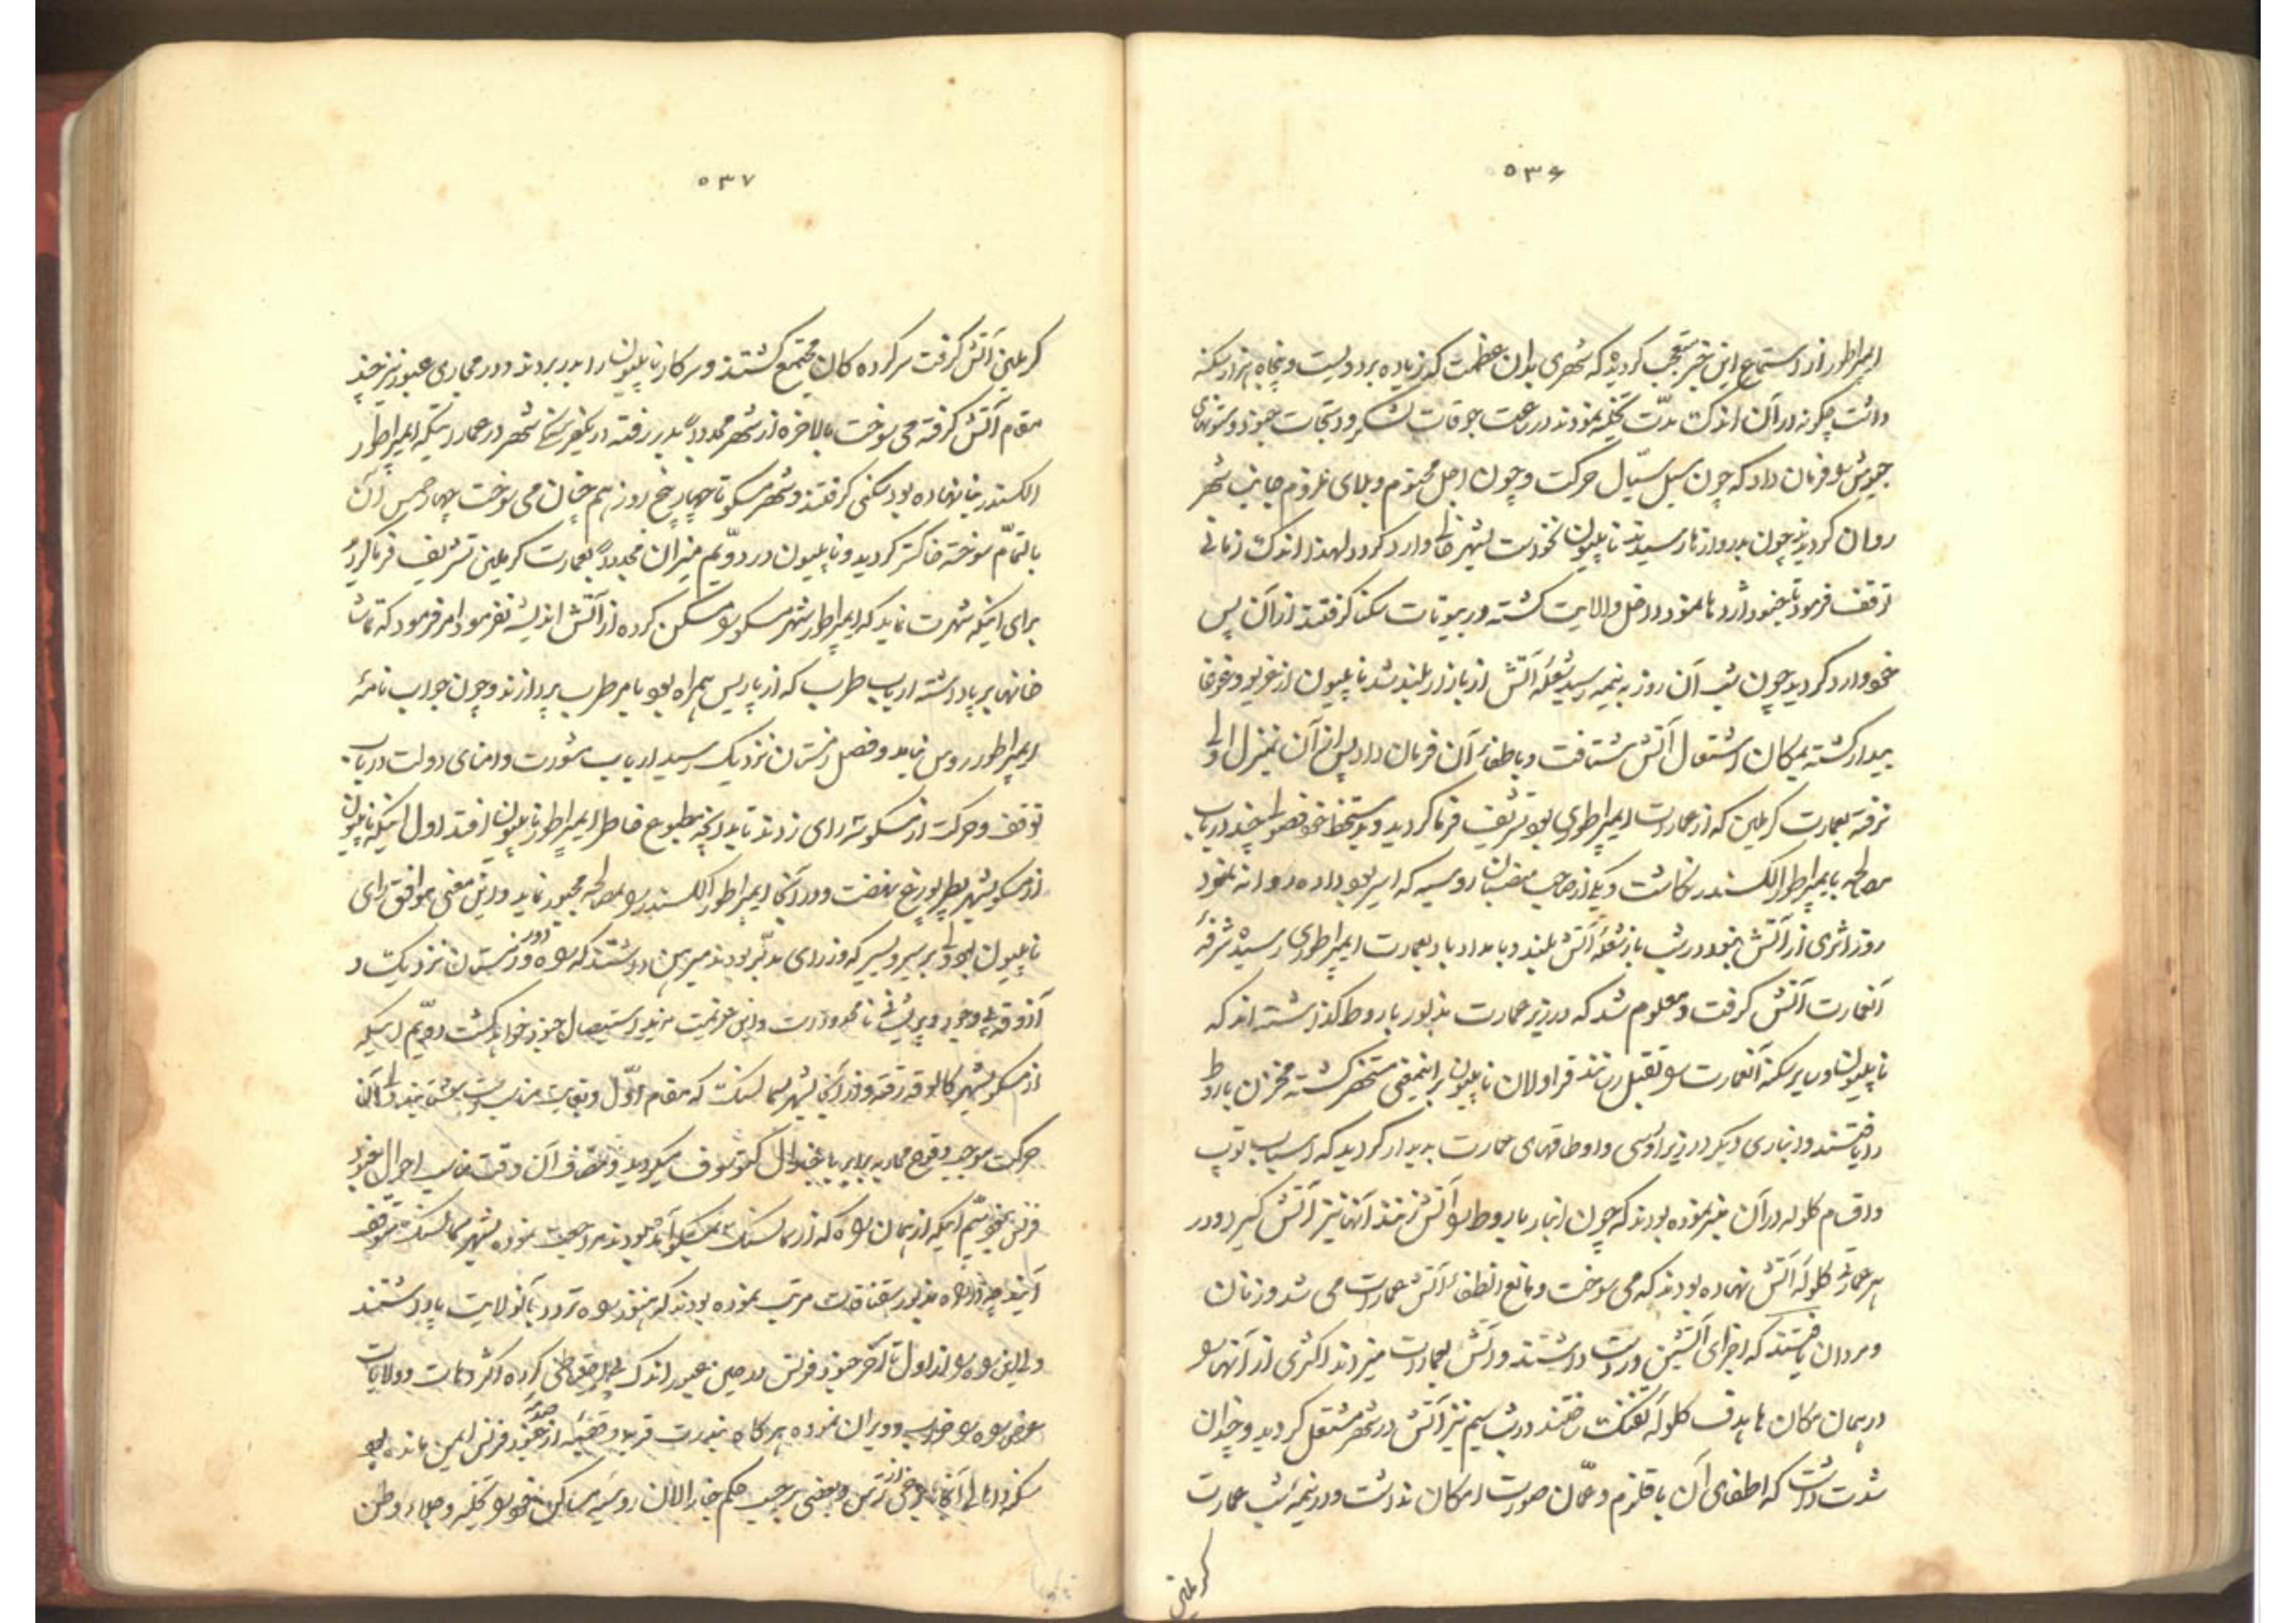 ۵۳۶
ایمپراطور از استماع این خبر متعجب گردید که شهری بدان عظمت که زیاده بر دویست و پنجاه هزار سکنه
داشت چگونه در آن اندک مدت تخلیه نمودند در ساعت جوقات لشکر و دستجات جنود و ستونهای
جیوش را فرمان داد که چون سیل سیّال حرکت و چون اجل محتوم و بلای ملزوم بجانب شهر
روان گردیدند چون بدروازها رسیدند ناپلیون نخواست بشهر خالی وارد گردد لهذا اندک زمانی
توقف فرمود تا جنود و اردوها بالتمام داخل ولایت گشته در بیوتات سکنا گرفتند از آن پس
خود وارد گردید چون شب آن روز به نیمه رسید شعله آتش از بازار بلند شد ناپلیون از غریو و غوغا
بیدار گشته بمکان اشتعال آتش شتافت و باطفاء آن فرمان داد پس از آن بمنزل اولی
نرفته بعمارت کرملین که از عمارات ایمپراطوری بود تشریف فرما گردید و بدستخط خود فصولی چند در باب
مصالحه بایمپراطور الکسندر نگاشت و یکی از صاحب منصبان روسیه که اسیر بود داده روانه نمود
روز اثری از آتش نبود در شب باز شعلهٔ آتش بلند و بامداد باد بعمارت ایمپراطوری رسید شرفهٔ
آنعمارت آتش گرفت و معلوم شد که در زیر عمارت مذبور باروط گذاشته‌اند که
ناپلیون و سایر سکنه آنعمارت را بقتل رسانند قراولان ناپلیون بر اینمعنی مستحضر گشته مخزن باروط
را یافتند و انباری دیگر در زیر اوُسی و اوطاقهای عمارت پدیدار گردید که اسباب توپ
و اقسام گلوله در آن پنهان نموده بودند که چون انبار باروط را آتش زنند آنها نیز آتش گیرد و در
هر عمارتی گلوله آتش نهاده بودند که می سوخت و مانع انطفاء آتش عمارات می شد و زنان
و مردان یافتند که اجزای آتشین در دست داشتند و آتش بعمارات میزدند اکثری از آنها را
در همان مکان ها هدف گلوله تفنگ ساختند در شب سیم نیز آتش در شهر مشتعل گردید و چندان
شدت داشت که اطفای آن با قلزم و عمّان صورت امکان نداشت و در نیمه شب عمارت
کرملین
۵۳۷
کرملین آتش گرفت سرکرده کان مجتمع گشتند و سرکار ناپلیون را بدر بردند و در مجاری عبور نیز چند
مقام آتش گرفته می سوخت بالاخره از شهر مجدداً بدر رفته در یکفرسخی شهر در عمارتیکه ایمپراطور
الکسندر بنا نهاده بود سکنی گرفتند و شهر مسکو تا چهار پنج روز هم چنان می سوخت چهار خمس آن
بالتمّام سوخته خاکستر گردید و ناپلیون در دوّیم میزان مجدداً بعمارت کرملین تشریف فرما گردید
برای اینکه شهرت نماید که ایمپراطور شهر مسکو را مسکن کرده از آتش اندیشه نفرمود امر فرمود که تماشا
خانها بر پا داشته ارباب طرب که از پاریس همراه بود بامر طرب پردازند و چون جواب نامهٔ
ایمپراطور روس نیامد و فصل زمستان نزدیک رسید ارباب مشورت و امنای دولت در باب
توقف و حرکت از مسکو شرای زدند تا بدانچه مطبوع خاطر ایمپراطور ناپلیون افتد اول اینکه ناپلیون
از مسکو بشهر پطرپورغ نهضت و در آنجا ایمپراطور الکسندر را بمصالحه مجبور نماید و این معنی موافق رای
ناپلیون بود ولی برسیر و سیر که وزرای مدبّر بودند مبرهن داشتند که راه دور و زمستان نزدیکست و
آذوقه و پریشانی نامحدود است و این عزیمت مزید استیصال جنود خواهد گشت دوّیم اینکه
از مسکو بشهر کالوقه رفته و از آنجا بشهر سمالسنک که مقام اوّل و بغایت مناسب است بشتابند ولی آن
حرکت موجب وقوع محاربه برابر با جنرال کتوسوف میگردید و مصاف آن وقت مناسب احوال جنود
فرنس نبود سیّم اینکه از همان راه که از سمالسنک بمسکو آمده بودند مراجعت نموده بشهر سمالسنک متوقف
آیند چه در راه مذبور سقناقات مرتب نموده بودند که هنوز راه تردد بآنولایت باز داشتند
و این راه را از اول تا آخر جنود فرنس در حین عبور اندک احتیاطی کرده اکثر دهات و ولایات
عرض راه را خراب و ویران نموده هرگاه بندرت قریه و قصبهٔ از صدمهٔ جنود فرنس ایمن مانده بود
سکنه و اهالی آنجا برخی از ترس و بعضی بر حسب حکم جنرالان روسیه مساکن خود را تخلیه و جلاء وطن